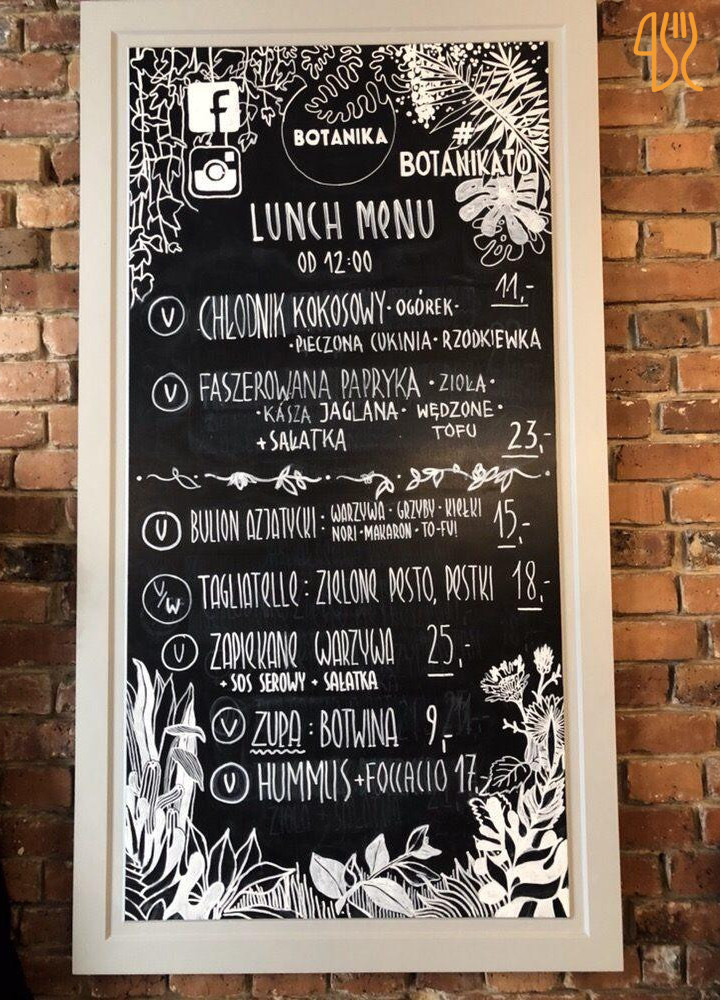 f
BOTANIKA
#
BOTANIKATO
LUNCH MENU
OD 12:00
V CHŁODNIK KOKOSOWY · OGÓREK · 11,-
· PIECZONA CUKINIA · RZODKIEWKA
V FASZEROWANA PAPRYKA · ZIOŁA ·
· KASZA JAGLANA · WĘDZONE ·
+ SAŁATKA TOFU 23,-
V BULION AZJATYCKI : WARZYWA · GRZYBY · KIEŁKI 15,-
NORI · MAKARON · TO-FU!
V/W TAGLIATELLE : ZIELONE PESTO, PESTKI 18,-
V ZAPIEKANE WARZYWA 25,-
+ SOS SEROWY + SAŁATKA
V ZUPA : BOTWINA 9,-
V HUMMUS + FOCCACIO 17,-